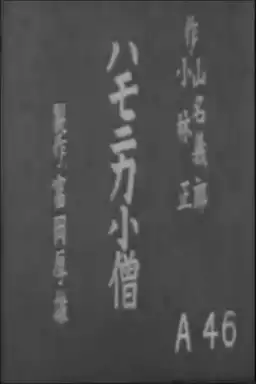 作 山名義郎
小林 正
ハモニカ小僧
製作・富岡厚雄
A 46